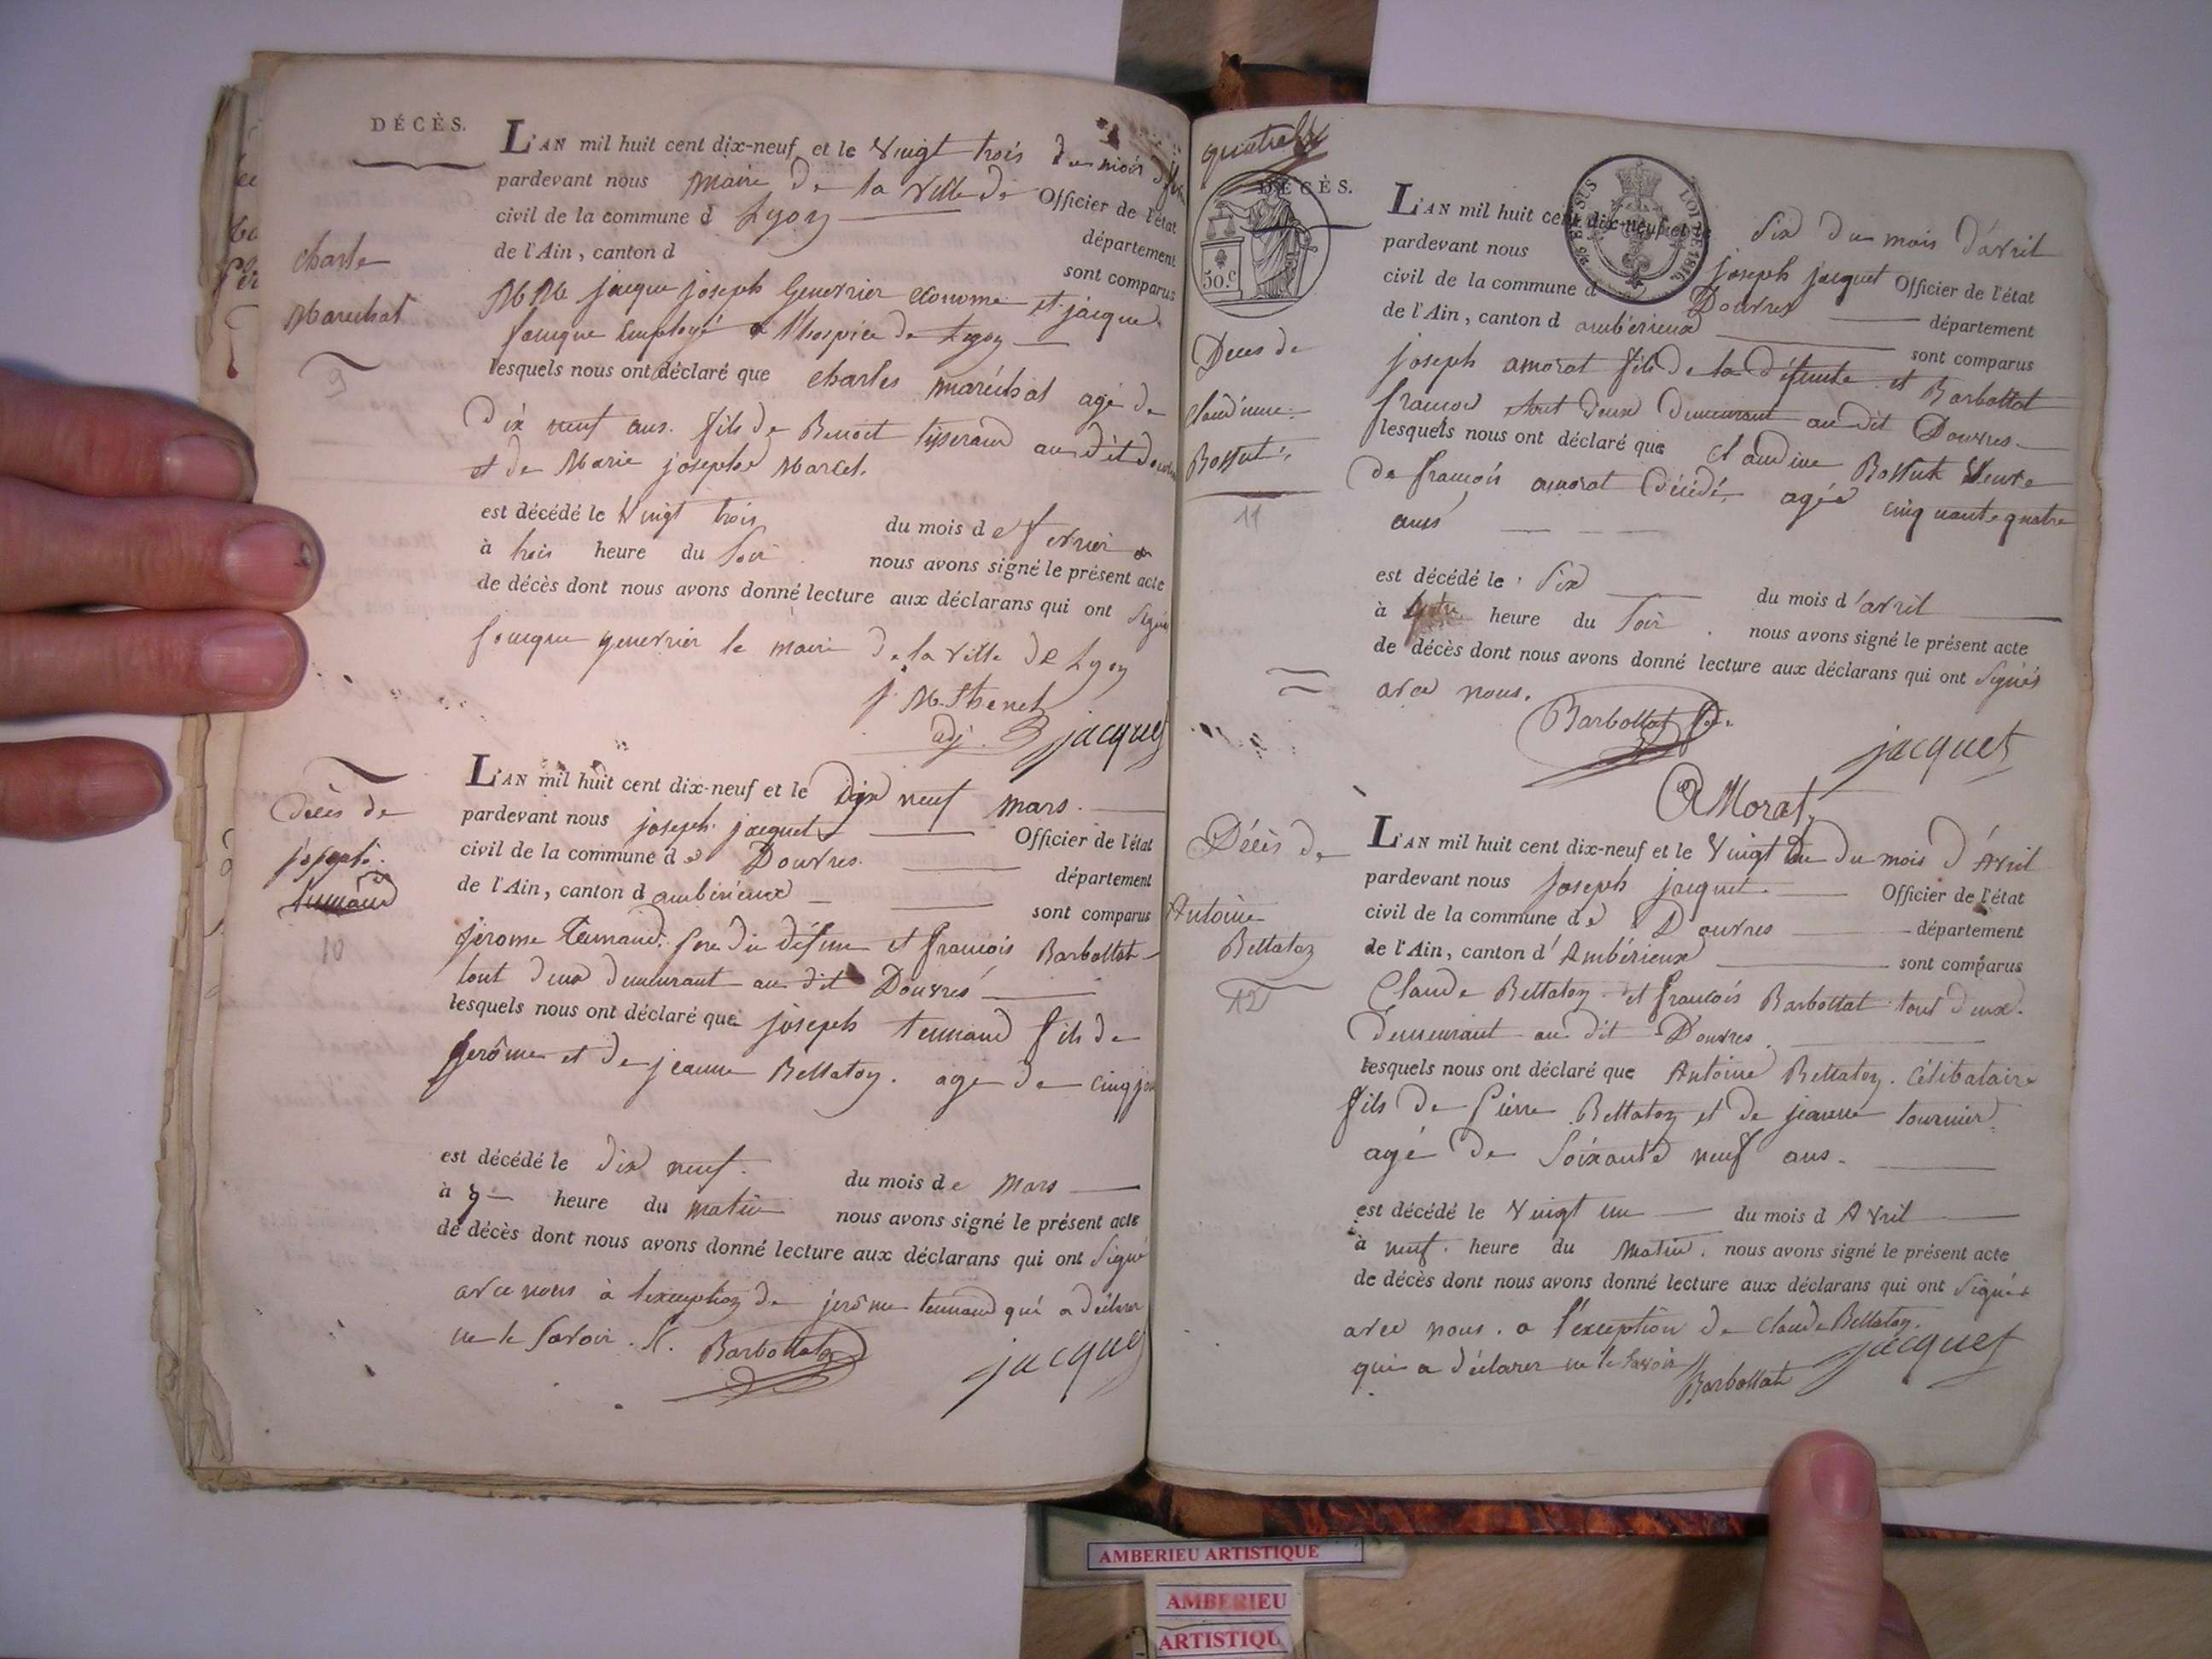 DÉCÈS.
charle
Marechat
9
L'AN mil huit cent dix-neuf et le Vingt trois du mois
pardevant nous Maire de la Ville de Officier de l'état
civil de la commune d Lyon département
de l'Ain, canton d sont comparus
MM jacque joseph Genevrier econome et jacque
fouque Employé a l'hospice de Lyon
lesquels nous ont déclaré que charles maréchal agé de
dix neuf ans. fils de Benoit tisserand au dit
et de Marie josephe Marcel.
est décédé le Vingt trois du mois de fevrier
à trois heure du soir nous avons signé le présent acte
de décès dont nous avons donné lecture aux déclarans qui ont signé
fouque genevrier le maire de la ville de Lyon
adj. jacquet
Décès de
joseph
tennand
10
L'AN mil huit cent dix-neuf et le Dix neuf mars.
pardevant nous joseph jacquet Officier de l'état
civil de la commune de Douvres. département
de l'Ain, canton d ambérieux sont comparus
jerome tennand. pere du défunt et francois Barbollat
tout deux demeurant au dit Douvres
lesquels nous ont déclaré que joseph tennand fils de
jerôme et de jeanne Bellaton. age de cinq
est décédé le dix neuf. du mois de Mars
à heure du matin nous avons signé le présent acte
de décès dont nous avons donné lecture aux déclarans qui ont signé
avec nous à l'exception de jerôme tennand qui a déclaré
ne le savoir. Barbollat jacquet
DÉCÈS.
50.c
LOI DE 1816.
EN SUS
Deces de
claudine
Bossut
11
L'AN mil huit cent dix-neuf et le Six du mois d'avril
pardevant nous joseph jacquet Officier de l'état
civil de la commune d Douvres département
de l'Ain, canton d ambérieux sont comparus
joseph amorat fils de la défunte et Barbollat
francois tout deux demeurant au dit Douvres
lesquels nous ont déclaré que claudine Bossut Veuve
de francois amorat décédé, agée cinquante quatre
ans
est décédé le Six du mois d'avril
à heure du soir. nous avons signé le présent acte
de décès dont nous avons donné lecture aux déclarans qui ont signés
avec nous.
Barbollat
jacquet
AMorat
Décès de
Antoine
Bellaton
12
L'AN mil huit cent dix-neuf et le Vingt un du mois d'Avril
pardevant nous joseph jacquet Officier de l'état
civil de la commune de Douvres département
de l'Ain, canton d'Ambérieux sont comparus
Claude Bellaton et francois Barbollat tout deux
demeurant au dit Douvres.
lesquels nous ont déclaré que Antoine Bellaton. célibataire
fils de Pierre Bellaton et de jeanne tournier
agé de Soixante neuf ans
est décédé le Vingt un du mois d Avril
à neuf. heure du Matin. nous avons signé le présent acte
de décès dont nous avons donné lecture aux déclarans qui ont signés
avec nous. a l'exception de Claude Bellaton.
qui a déclaré ne le savoir Barbollat jacquet
AMBERIEU ARTISTIQUE
AMBERIEU
ARTISTIQU